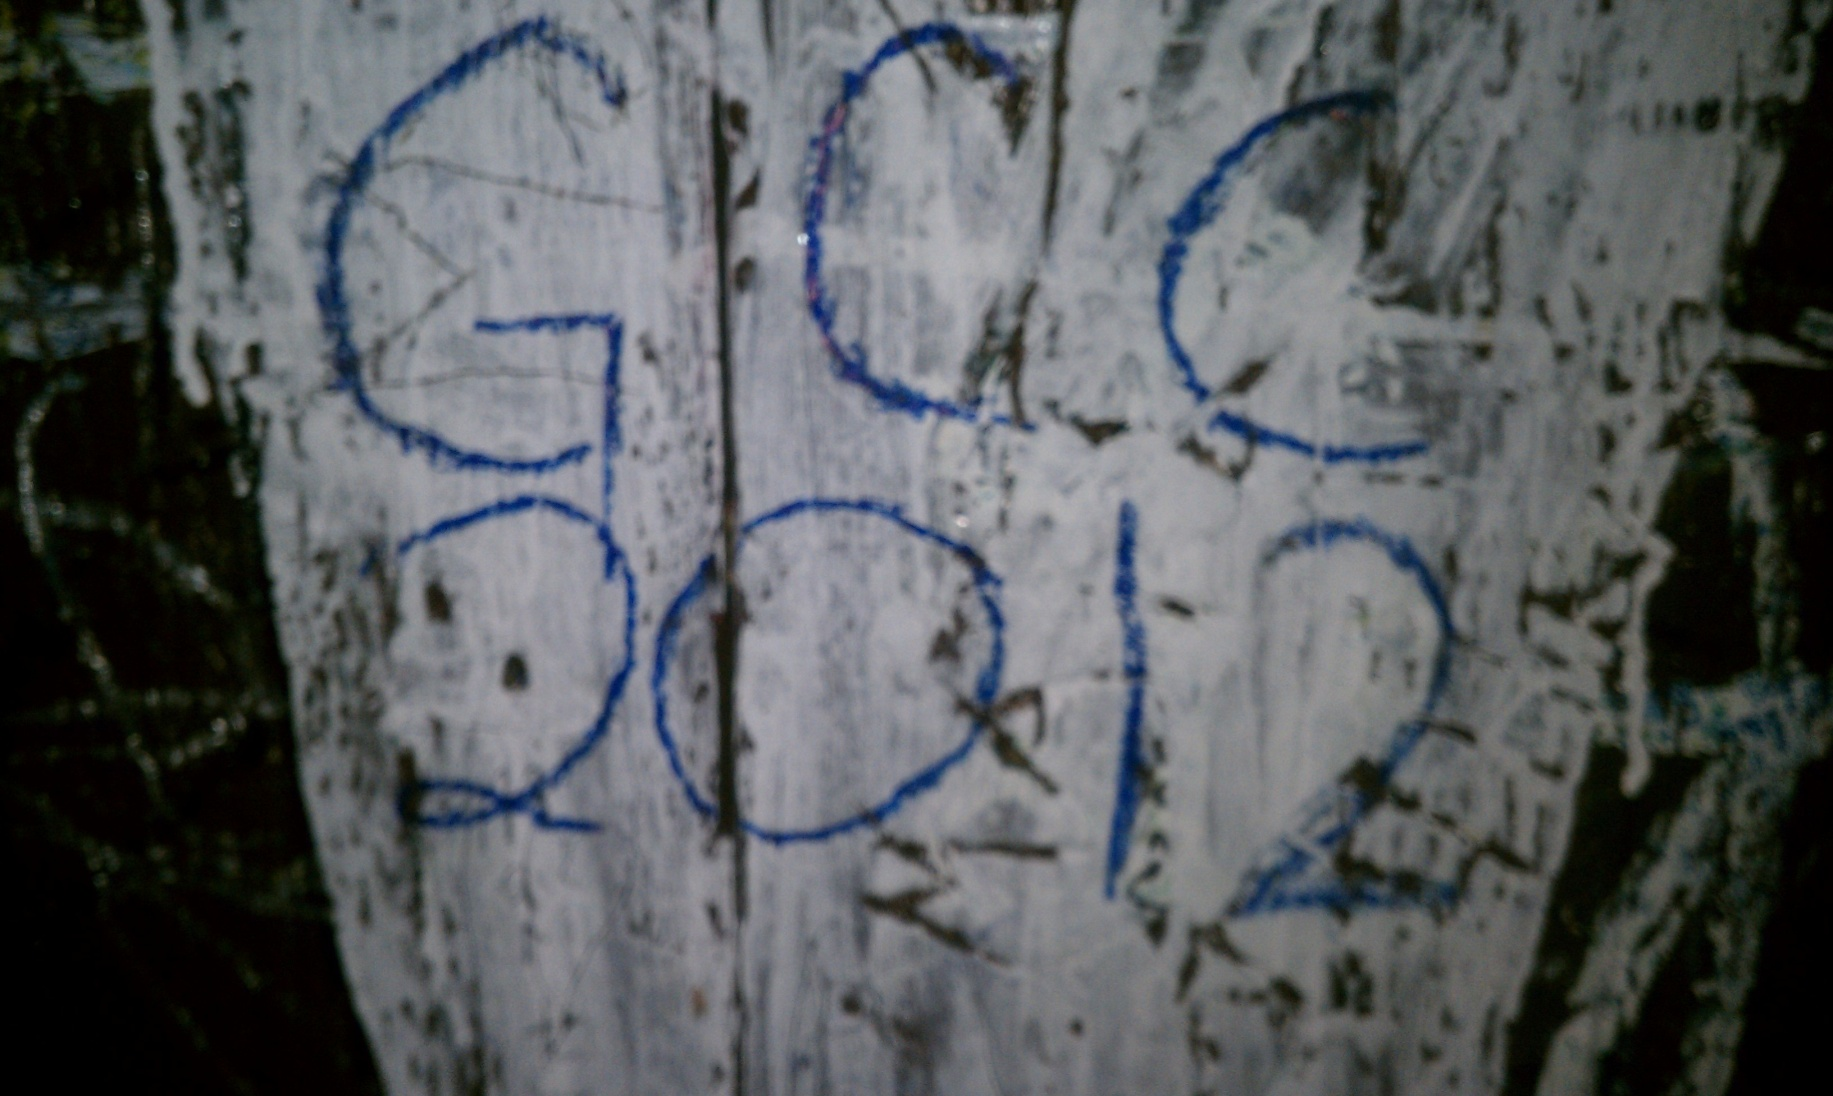 GCC
2012